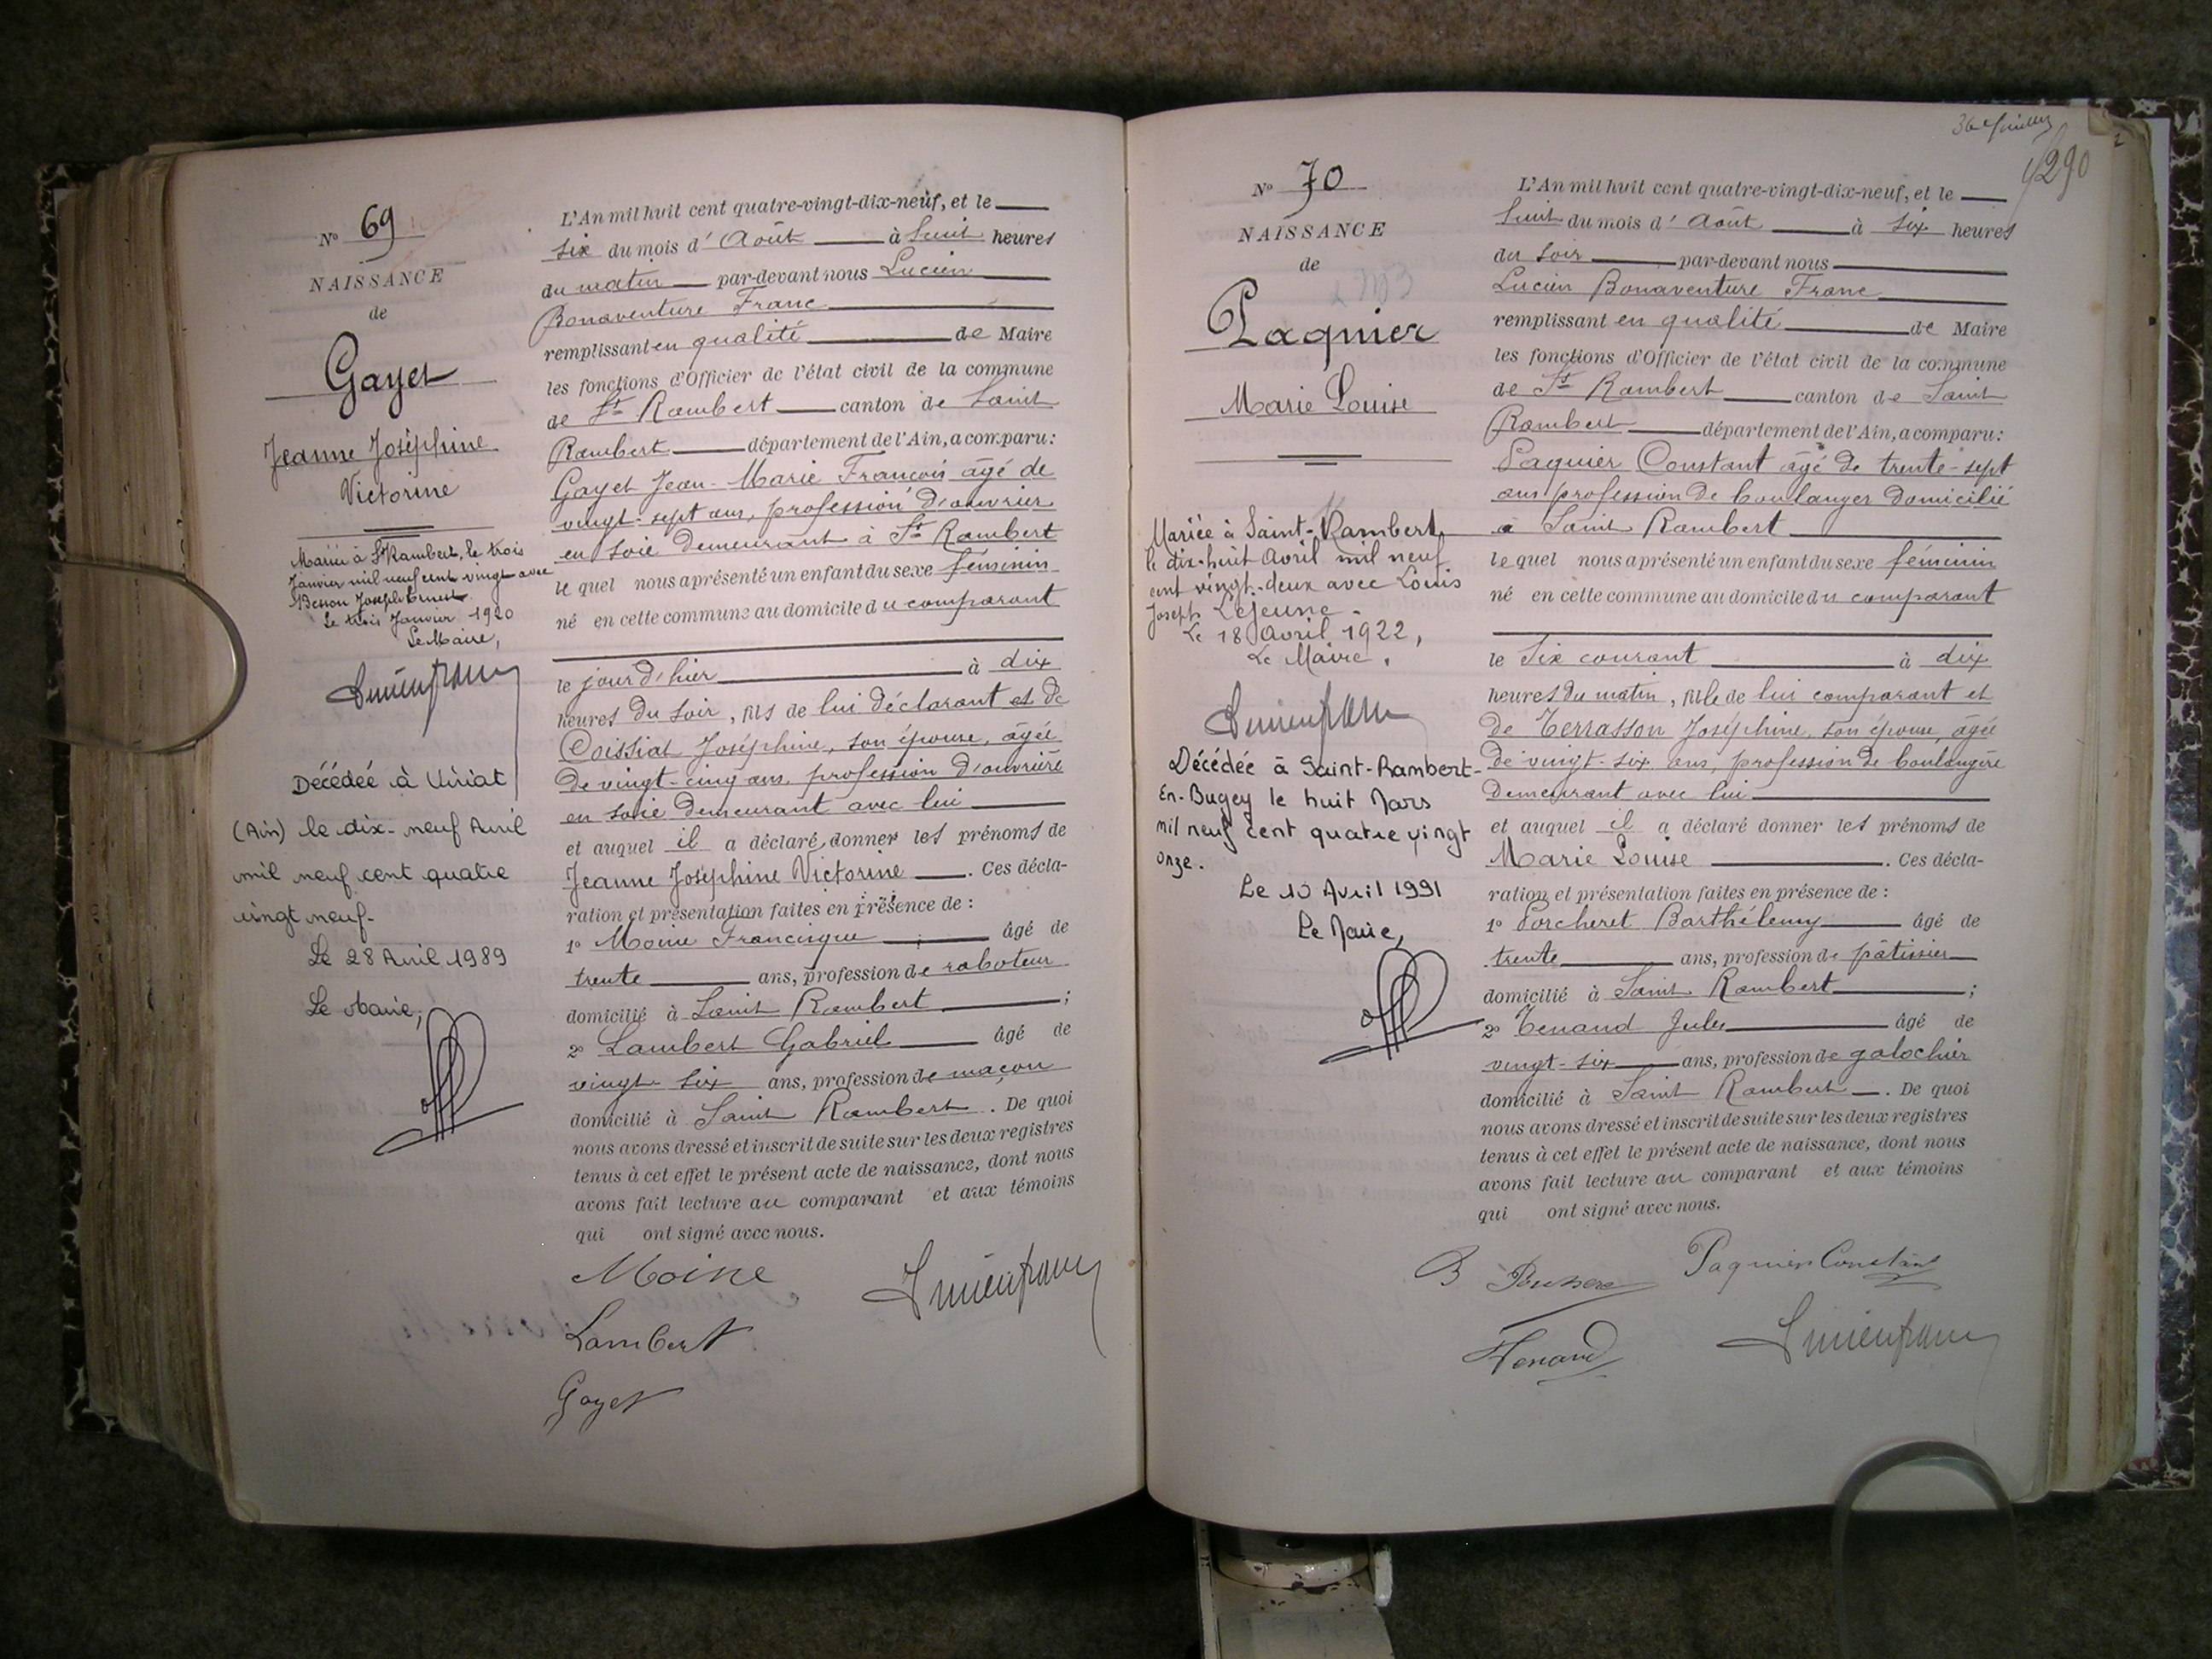 No 69
NAISSANCE
de
Gayet
Jeanne Joséphine
Victorine
Mariée à St Rambert, le trois
Janvier mil neuf cent vingt avec
Besson Joseph Ernest
Le trois Janvier 1920
Le Maire,
Décédée à Viriat
(Ain) le dix-neuf Avril
mil neuf cent quatre
vingt neuf.
Le 28 Avril 1989
Le Maire,
L'An mil huit cent quatre-vingt-dix-neuf, et le
six du mois d'Août à huit heures
du matin par-devant nous Lucien
Bonaventure Franc
remplissant en qualité de Maire
les fonctions d'Officier de l'état civil de la commune
de St Rambert canton de Saint
Rambert département de l'Ain, a comparu:
Gayet Jean-Marie François âgé de
vingt-sept ans, profession d'ouvrier
en soie demeurant à St Rambert
le quel nous a présenté un enfant du sexe féminin
né en cette commune au domicile du comparant
le jour d'hier à dix
heures du soir, fils de lui déclarant et de
Coissiat Joséphine, son épouse, âgée
de vingt-cinq ans, profession d'ouvrière
en soie demeurant avec lui
et auquel il a déclaré donner les prénoms de
Jeanne Joséphine Victorine. Ces décla-
ration et présentation faites en présence de :
1° Moine Francisque âgé de
trente ans, profession de raboteur
domicilié à Saint Rambert ;
2° Lambert Gabriel âgé de
vingt-six ans, profession de maçon
domicilié à Saint Rambert. De quoi
nous avons dressé et inscrit de suite sur les deux registres
tenus à cet effet le présent acte de naissance, dont nous
avons fait lecture au comparant et aux témoins
qui ont signé avec nous.
Moine
Lucien Franc
Lambert
Gayet
290
No 70
NAISSANCE
de
Paquier
Marie Louise
Mariée à Saint-Rambert
le dix-huit Avril mil neuf
cent vingt-deux avec Louis
Joseph Lejeune.
Le 18 Avril 1922,
Le Maire.
Décédée à Saint-Rambert-
En-Bugey le huit Mars
mil neuf cent quatre vingt
onze.
Le 10 Avril 1991
Le Maire,
L'An mil huit cent quatre-vingt-dix-neuf, et le
huit du mois d'Août à six heures
du soir par-devant nous
Lucien Bonaventure Franc
remplissant en qualité de Maire
les fonctions d'Officier de l'état civil de la commune
de St Rambert canton de Saint
Rambert département de l'Ain, a comparu:
Paquier Constant âgé de trente-sept
ans profession de boulanger domicilié
à Saint Rambert
le quel nous a présenté un enfant du sexe féminin
né en cette commune au domicile du comparant
le six courant à dix
heures du matin, fille de lui comparant et
de Terrasson Joséphine, son épouse, âgée
de vingt-six ans, profession de boulangère
demeurant avec lui
et auquel il a déclaré donner les prénoms de
Marie Louise. Ces décla-
ration et présentation faites en présence de :
1° Porcheret Barthélemy âgé de
trente ans, profession de pâtissier
domicilié à Saint Rambert ;
2° Tenand Jules âgé de
vingt-six ans, profession de galochier
domicilié à Saint Rambert. De quoi
nous avons dressé et inscrit de suite sur les deux registres
tenus à cet effet le présent acte de naissance, dont nous
avons fait lecture au comparant et aux témoins
qui ont signé avec nous.
Paquier Constant
Tenand
Lucien Franc